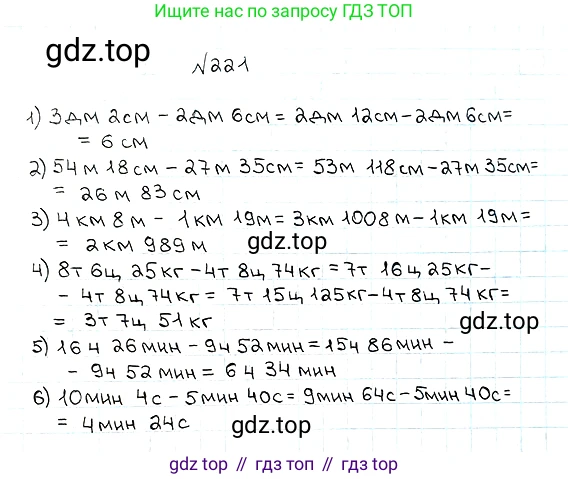 Ищите нас по запросу ГДЗ ТОП
gdz.top
№221
1) 3дм 2см - 2дм 6см = 2дм 12см - 2дм 6см =
= 6 см
2) 54 м 18 см - 27 м 35 см = 53 м 118 см - 27 м 35 см =
= 26 м 83 см
3) 4 км 8 м - 1 км 19 м = 3 км 1008 м - 1 км 19 м =
= 2 км 989 м
gdz.top
4) 8т 6ц 25 кг - 4т 8ц 74 кг = 7т 16ц 25 кг -
- 4т 8ц 74 кг = 7т 15ц 125 кг - 4т 8ц 74 кг =
= 3т 7ц 51 кг
gdz.top
5) 16 ч 26 мин - 9ч 52 мин = 15ч 86 мин -
- 9ч 52 мин = 6 ч 34 мин
6) 10 мин 4с - 5 мин 40с = 9 мин 64с - 5 мин 40с =
= 4 мин 24с
gdz.top
gdz.top // гдз топ // гдз.top